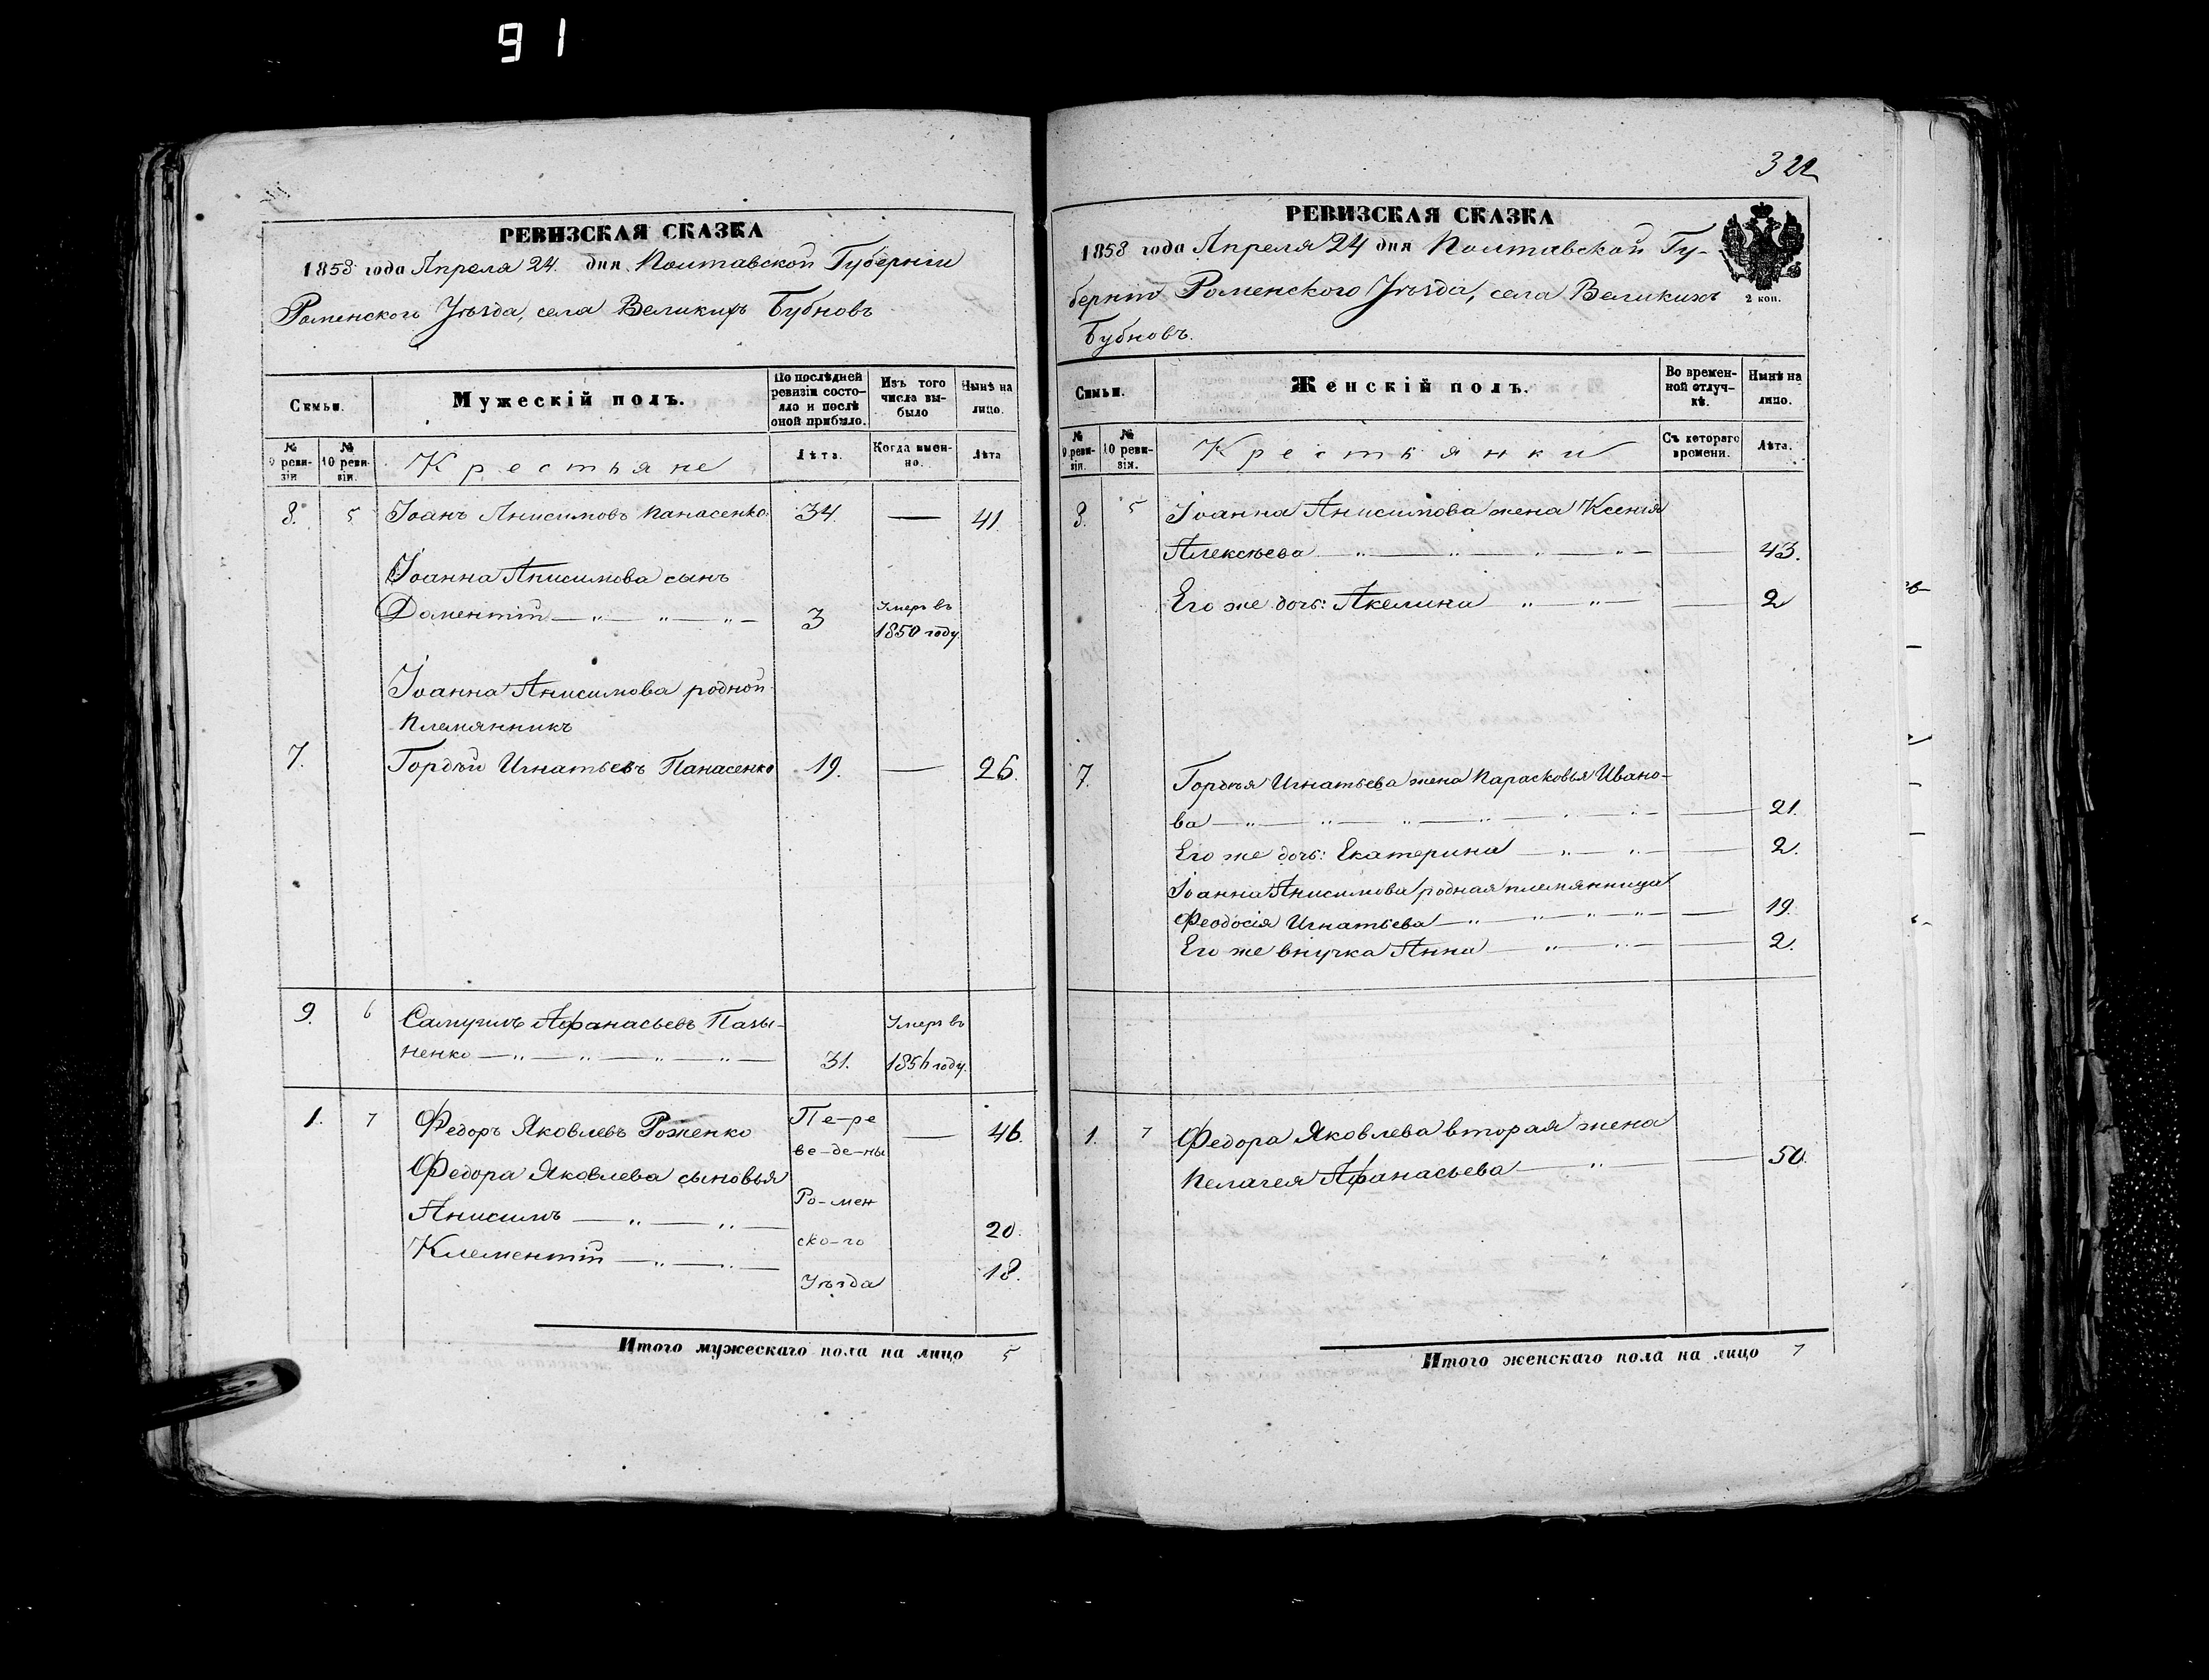 91
РЕВИЗСКАЯ СКАЗКА
1858 года Апреля 24. дня Полтавской Губерніи
Роменского Уѣзда, села Великихъ Бубновъ
Семьи.
Мужескій полъ.
По послѣдней ревизіи состояло и послѣ оной прибыло.
Изъ того числа выбыло
Нынѣ на лицо.
№ 9 ревизіи
№ 10 ревизіи.
Крестьяне
Лѣта.
Когда именно.
Лѣта
8. 5 Іоанъ Анисимовъ Панасенко 34. — 41.
Іоанна Анисимова сынъ
Доментій — „ — „ — „ — 3 Умеръ въ
1850 году.
Іоанна Анисимова родной
племянникъ
7. Гордѣй Игнатьевъ Панасенко 19. — 26.
9. 6 Самуилъ Афанасьевъ Пазы- Умеръ въ
ненко — „ — „ — „ — „ — 31. 1856 году.
1. 7 Федоръ Яковлевъ Роженко Пе-ре — 46.
ве-де-ны
Федора Яковлева сыновья Ро-мен
Анисимъ — „ — „ — 20.
ско-го
Клементій — „ — „ — 18.
Уѣзда
Итого мужескаго пола на лицо 5
322
РЕВИЗСКАЯ СКАЗКА
1858 года Апреля 24 дня Полтавской Гу-
берніи Роменского Уѣзда, села Великихъ
2 коп.
Бубновъ.
Семьи.
Женскій полъ.
Во временной отлучкѣ.
Нынѣ на лицо.
№ 9 ревизіи.
№ 10 ревизіи.
Крестьянки
Съ котораго времени.
Лѣта.
8. 5 Іоанна Анисимова жена Ксенія
Алексѣева — „ — „ — „ — „ — — 43.
Его же дочь: Акелина „ — „ — — 2
7. Гордѣя Игнатьева жена Парасковья Ивано-
ва — „ — „ — „ — „ — „ — — 21.
Его же дочь: Екатерина — „ — „ — — 2.
Іоанна Анисимова родная племянница
Феодосія Игнатьева — „ — „ — „ — „ — — 19.
Его же внучка Анна — „ — „ — — 2.
1. 7 Федора Яковлева вторая жена
Пелагея Афанасьева — „ — — 50.
Итого женскаго пола на лицо 7